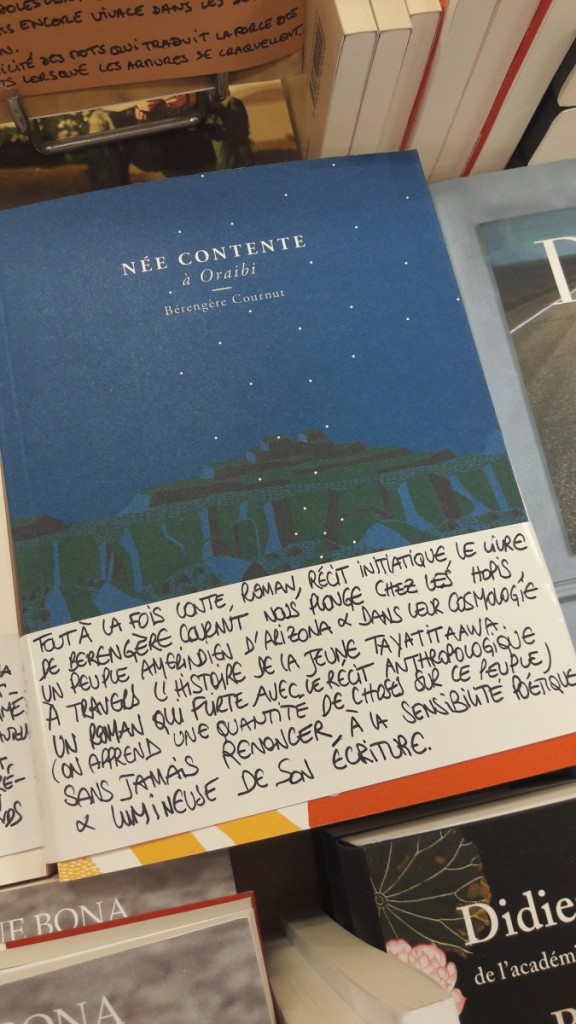 ENCORE VIVACE DANS LES
CITÉ DES MOTS QUI TRADUIT LA FORCE DES
LORSQUE LES ARMURES SE CRAQUELLENT.
NÉE CONTENTE
à Oraibi
Bérengère Cournut
D
TOUT À LA FOIS CONTE, ROMAN, RÉCIT INITIATIQUE, LE LIVRE
DE BERENGÈRE COURNUT NOUS PLONGE CHEZ LES HOPIS,
UN PEUPLE AMERINDIEN D'ARIZONA & DANS LEUR COSMOLOGIE
À TRAVERS L'HISTOIRE DE LA JEUNE TAYATITAAWA.
UN ROMAN QUI FLIRTE AVEC LE RÉCIT ANTHROPOLOGIQUE
(ON APPREND UNE QUANTITÉ DE CHOSES SUR CE PEUPLE)
SANS JAMAIS RENONCER À LA SENSIBILITÉ POÉTIQUE
& LUMINEUSE DE SON ÉCRITURE.
UE BONA
BONA
Didie
de l'académi